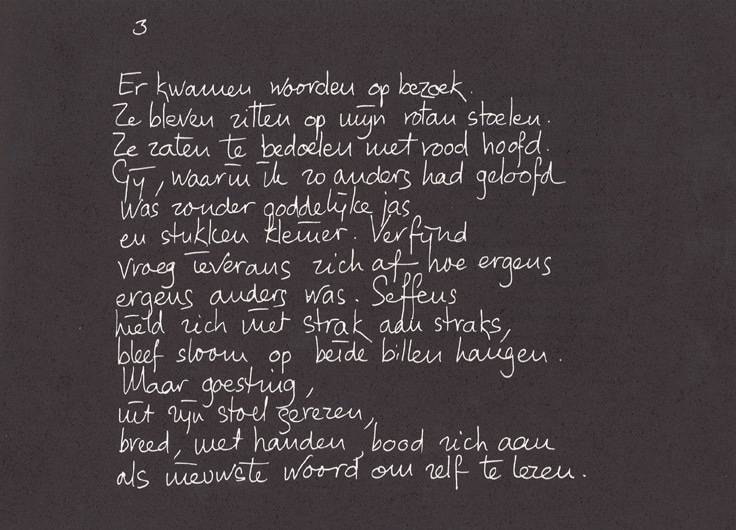 3
Er kwamen woorden op bezoek.
Ze bleven zitten op mijn rotan stoelen.
Ze zaten te bedoelen met rood hoofd.
Gij, waarin ik zo anders had geloofd
was zonder goddelijke jas
en stukken kleiner. Verfijnd
vroeg ieverans zich af hoe ergens
ergens anders was. Seffens
hield zich niet strak aan straks,
bleef sloom op beide billen hangen.
Maar goesting,
uit zijn stoel gerezen,
breed, met handen, bood zich aan
als nieuwste woord om zelf te lezen.